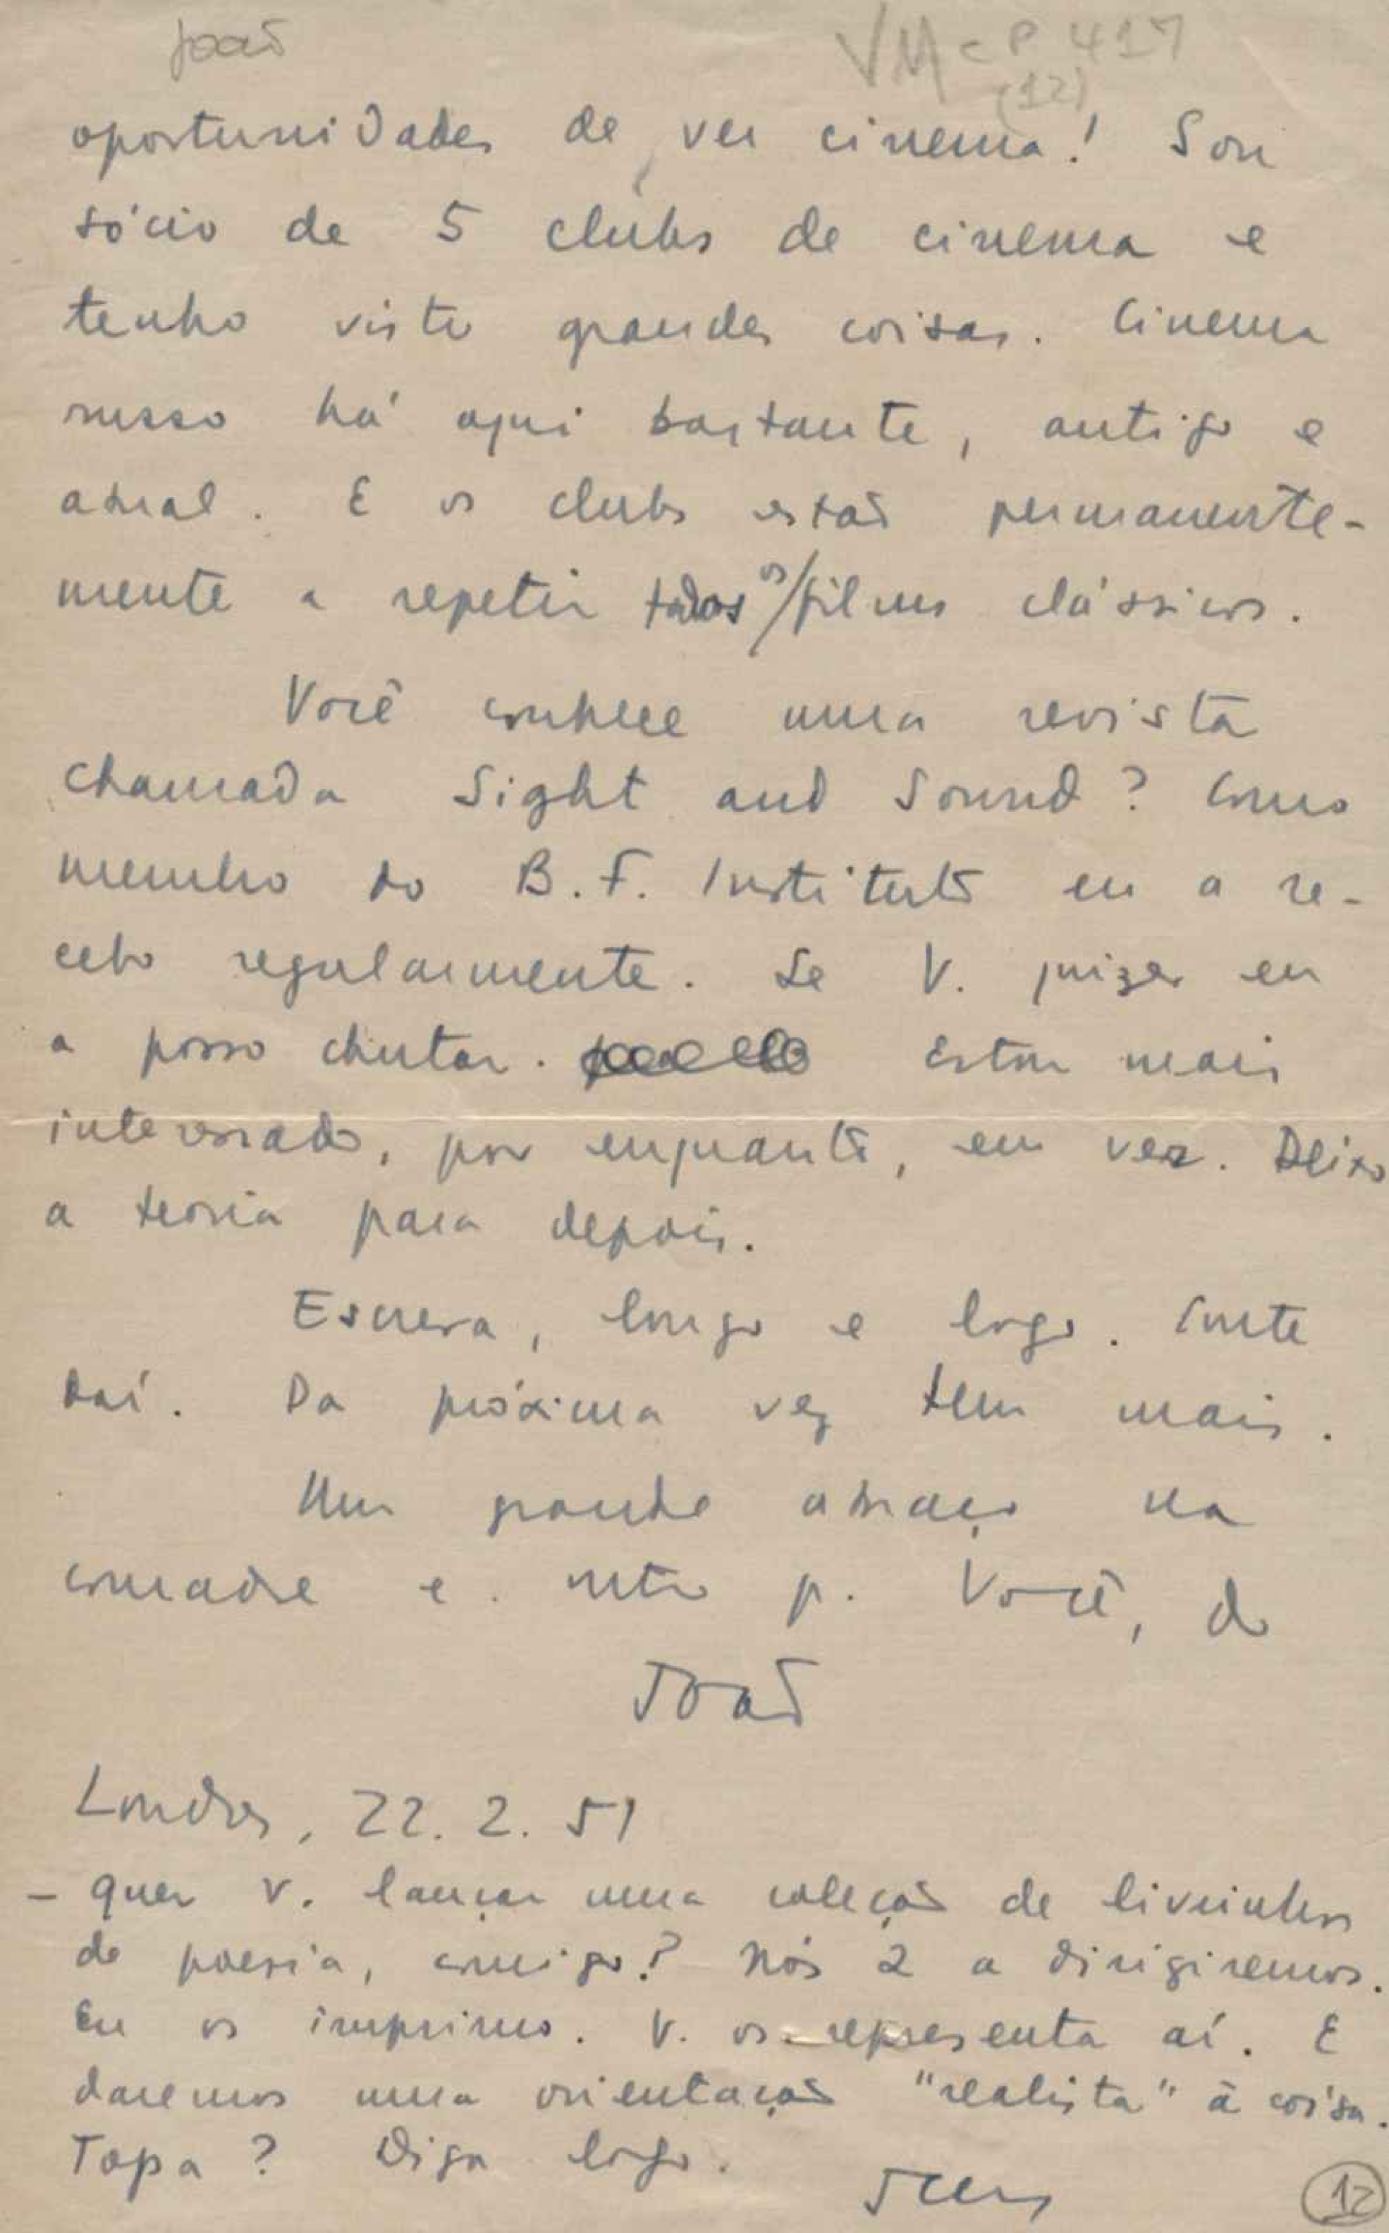 João
VMcp 417
(12)
oportunidades de ver cinema! Sou
sócio de 5 clubs de cinema e
tenho visto grandes coisas. Cinema
russo há aqui bastante, antigo e
atual. E os clubs estão permanente-
mente a repetir todos os/films clássicos.
Você conhece uma revista
chamada Sight and Sound? Como
membro do B.F. Instituto eu a re-
cebo regularmente. Se V. quizer eu
a posso chutar. Estou mais
interessado, por enquanto, em ver. Deixo
a teoria para depois.
Escreva, longo e logo. Conte
daí. Da próxima vez tem mais.
Um grande abraço na
comadre e outro p. Você, do
João
Londres, 22.2.51
- Quer V. lançar uma coleção de livrinhos
de poesia, comigo? Nós 2 a dirigiremos.
Eu os imprimo. V. os representa aí. E
daremos uma orientação "realista" à coisa.
Topa? Diga logo.
12